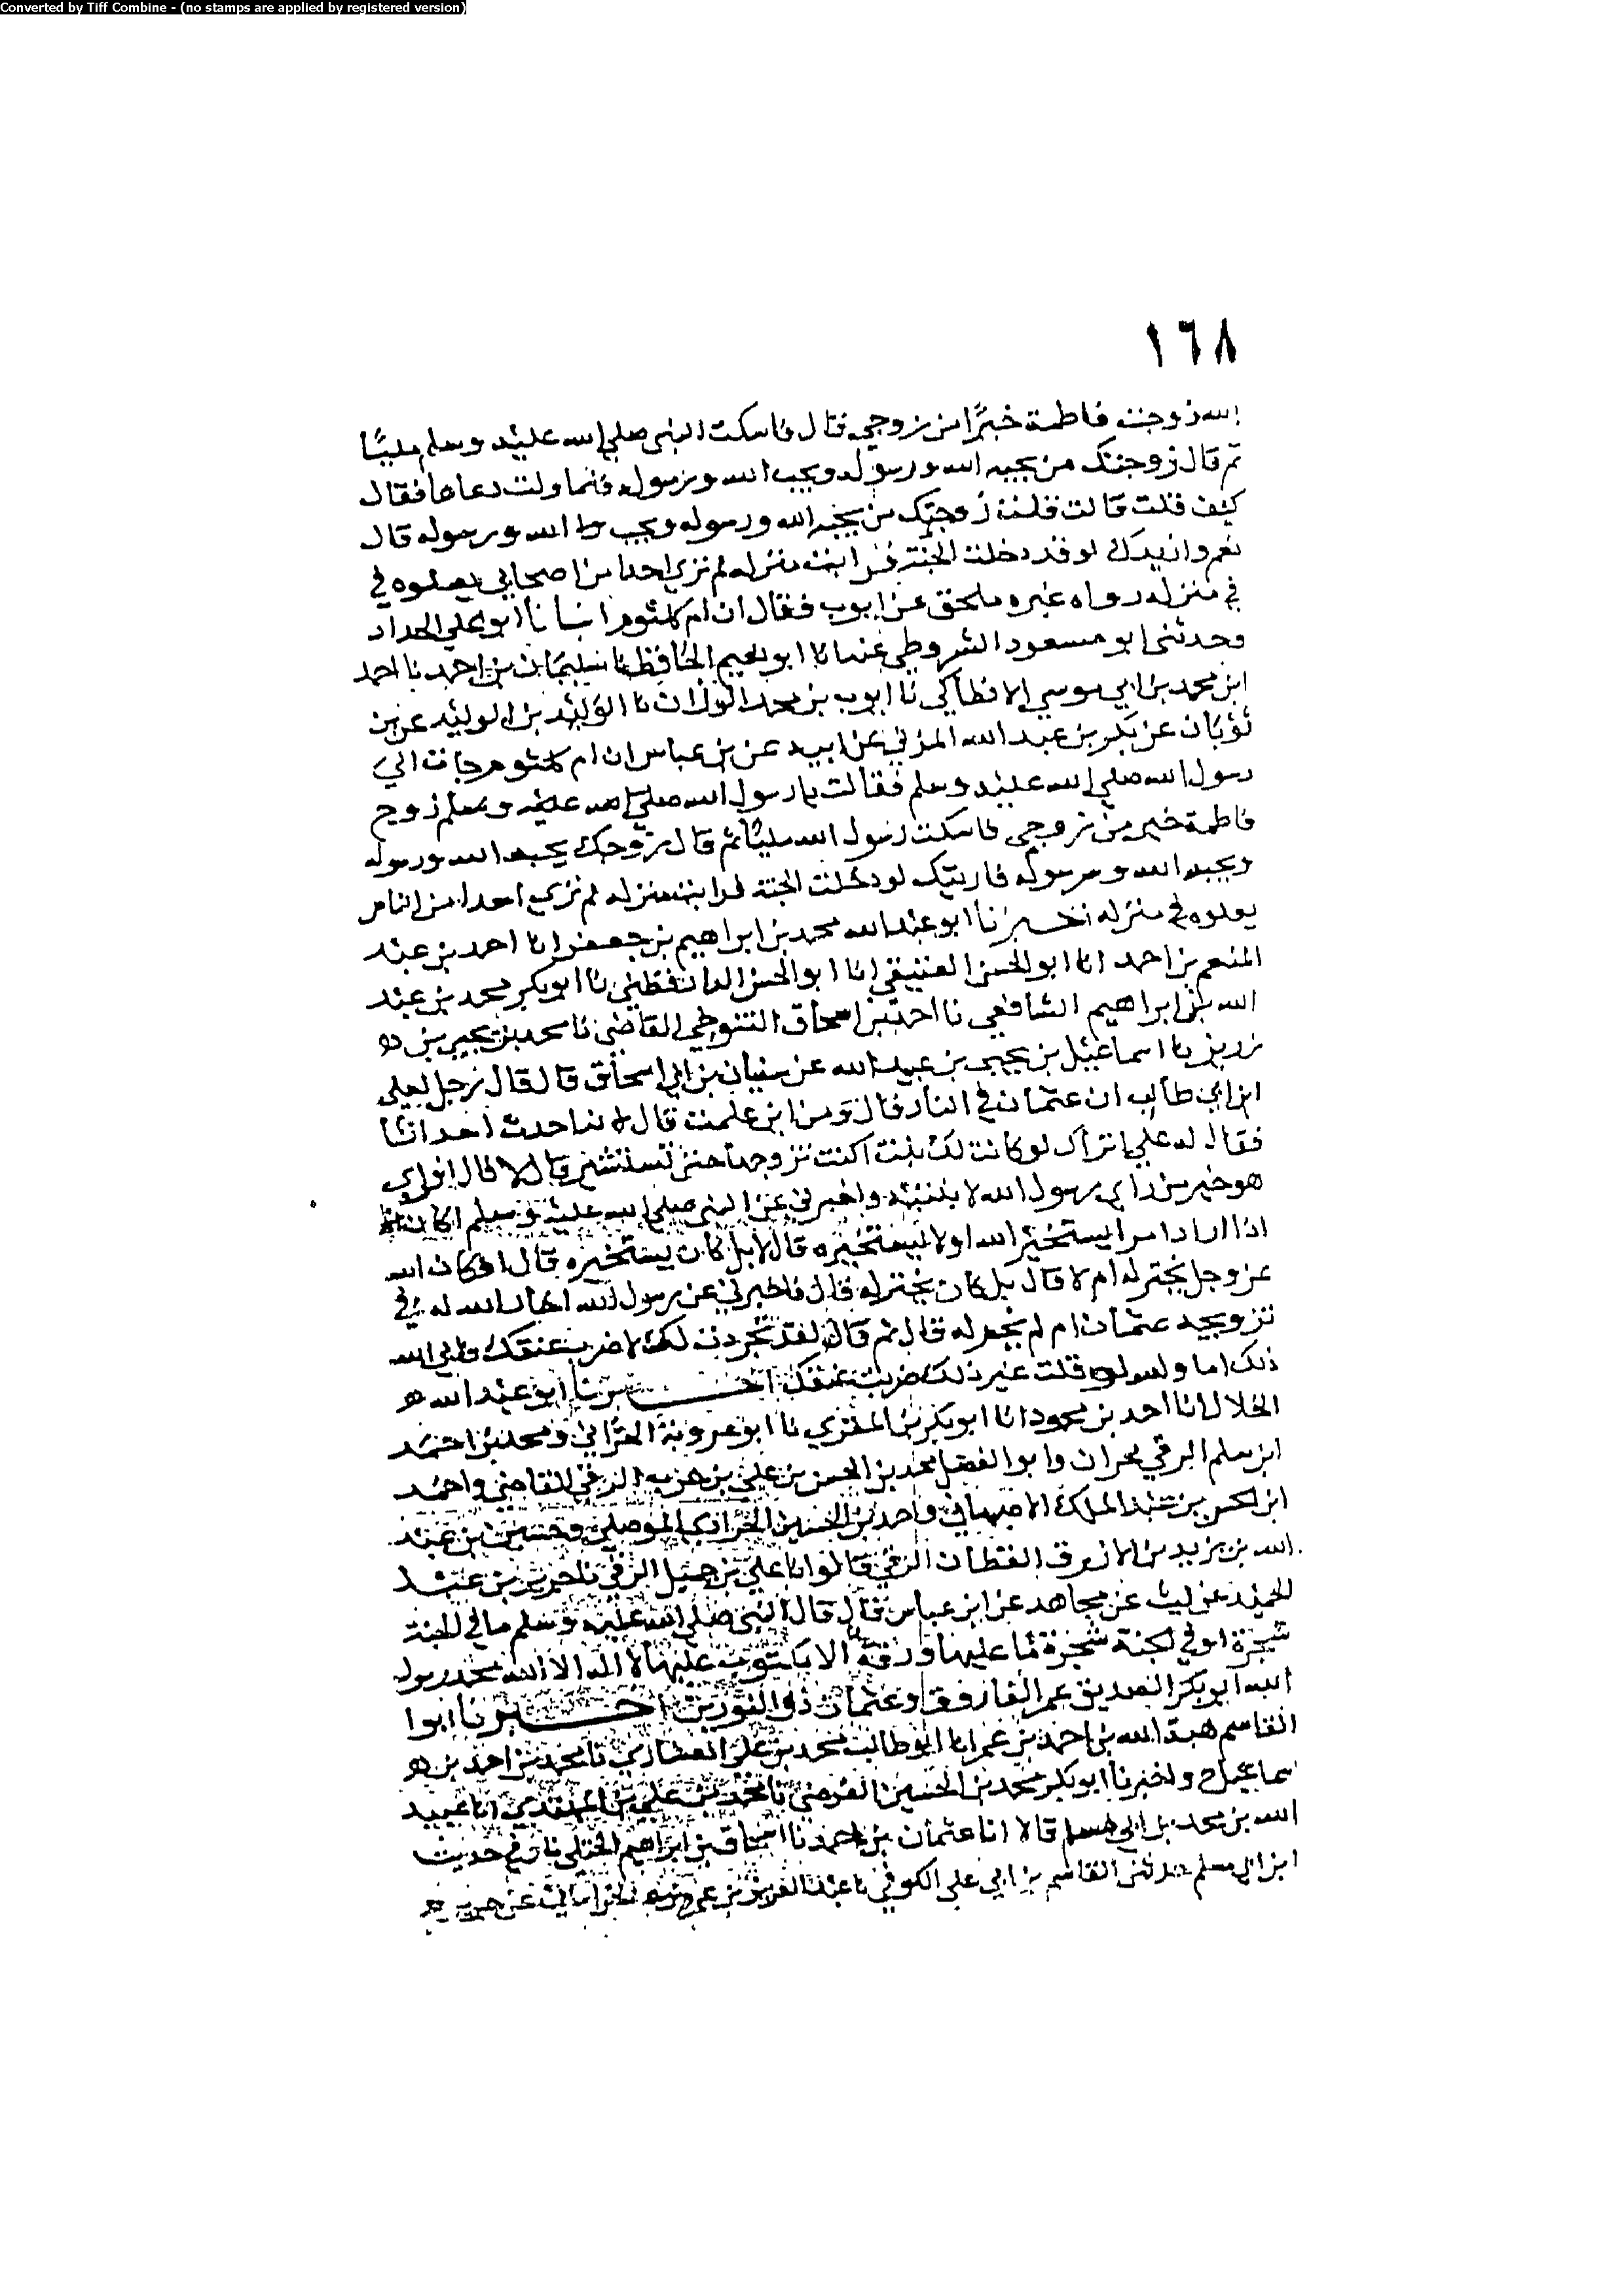 Converted by Tiff Combine - (no stamps are applied by registered version)
١٦٨
الله زوجت فاطمة خيرا من زوجي قال فاسكت النبي صلي الله عليه وسلم مليا
ثم قال زوجتك من يحبه الله ورسوله ويحب الله ورسوله فلما ولت دعاها فقال
كيف قلت قالت قلت زوجتك من يحبه الله ورسوله ويحب الله ورسوله قال
نعم وازيدك لو قد دخلت الجنة فرايت منزله لم تري احدا من اصحابي يعلوه في
في منزله رواه غيره عن ايوب فقال ان ام كلثوم انبانا ابو علي الحداد
وحدثني ابو مسعود الشروطي عنه انا ابو نعيم الحافظ نا سليمان بن احمد نا احمد
ابن محمد بن ابي موسي الانطاكي نا ايوب بن محمد الوزان نا الوليد بن الوليد عن بن
ثوبان عن بكر بن عبد الله المزني عن ابيه عن بن عباس ان ام كلثوم جات الي
رسول الله صلي الله عليه وسلم فقالت يا رسول الله صلي الله عليه وسلم زوج
فاطمة خير من زوجي فاسكت رسول الله مليا ثم قال زوجك يحبه الله ورسوله
ويحبه الله ورسوله فاريتك لو دخلت الجنة فرايت منزله لم تري احدا من الناس
يعلوه في منزله اخبرنا ابو عبد الله محمد بن ابراهيم بن جعفر انا احمد بن عبد
المنعم بن احمد انا ابو الحسن العتيقي انا ابو الحسن الدارقطني نا ابو بكر محمد بن عبد
الله بن ابراهيم الشافعي نا احمد بن اسحاق التنوخي القاضي نا محمد بن
نا اسماعيل بن يحيي بن عبيد الله عن سفيان بن ابي اسحاق قال قال رجل لعلي
ابن ابي طالب ان عثمان في النار قال ومن اين علمت قال لانه احدث احداثا
فقال له علي اتراك لو كانت لك بنت اكنت تزوجها حتي تستشير قال لا قال افراي
هو خير من راي رسول الله لابنتيه واخبرني عن النبي صلي الله عليه وسلم اكان
اذا اراد امرا يستخير الله او لا يستخيره قال لا بل كان يستخيره قال افكان الله
عز وجل يختر له ام لا قال بل كان يختر له قال فاخبرني عن رسول الله اختار الله له في
تزويجه عثمان ام لم يختر له قال ثم قال لقد تجردت لك لاضرب عنقك فابي الله
ذلك اما والله لو قلت غير ذلك ضربت عنقك اخبرنا ابو عبد الله
الخلال انا احمد بن محمود انا ابو بكر بن المقري نا ابو عروبة الحراني ومحمد بن احمد
ابن سلم الرقي بحران وابو الفضل محمد بن الحسن بن علي بن حرب الرقي القاضي واحمد
ابن الحسن بن عبد الملك الاصبهاني واحمد بن الحسين الجرادي الموصلي وحسين بن عبد
الله بن يزيد بن الازرق القطان الرقي قالوا نا علي بن جميل الرقي نا جرير بن عبد
الحميد عن ليث عن مجاهد عن ابن عباس قال قال النبي صلي الله عليه وسلم ما في الجنة
شجرة او في الجنة شجرة ما عليها ورقة الا مكتوب عليها لا اله الا الله محمد رسول
الله ابو بكر الصديق عمر الفاروق وعثمان ذو النورين اخبرنا ابوا
القاسم هبة الله بن احمد بن عمر انا ابو طالب محمد بن علي العشاري نا محمد بن احمد بن
سماعيل ح واخبرنا ابو بكر محمد بن الحسين الفرضي نا محمد بن علي بن المهتدي انا عبيد
الله بن محمد بن ابي مسلم قالا انا عثمان بن احمد نا اسحاق بن ابراهيم الختلي نا وفي حديث
ابن ابي مسلم حدثني القاسم بن ابي علي الكوفي نا عبد العزيز بن عمرو الخراساني عن جرير